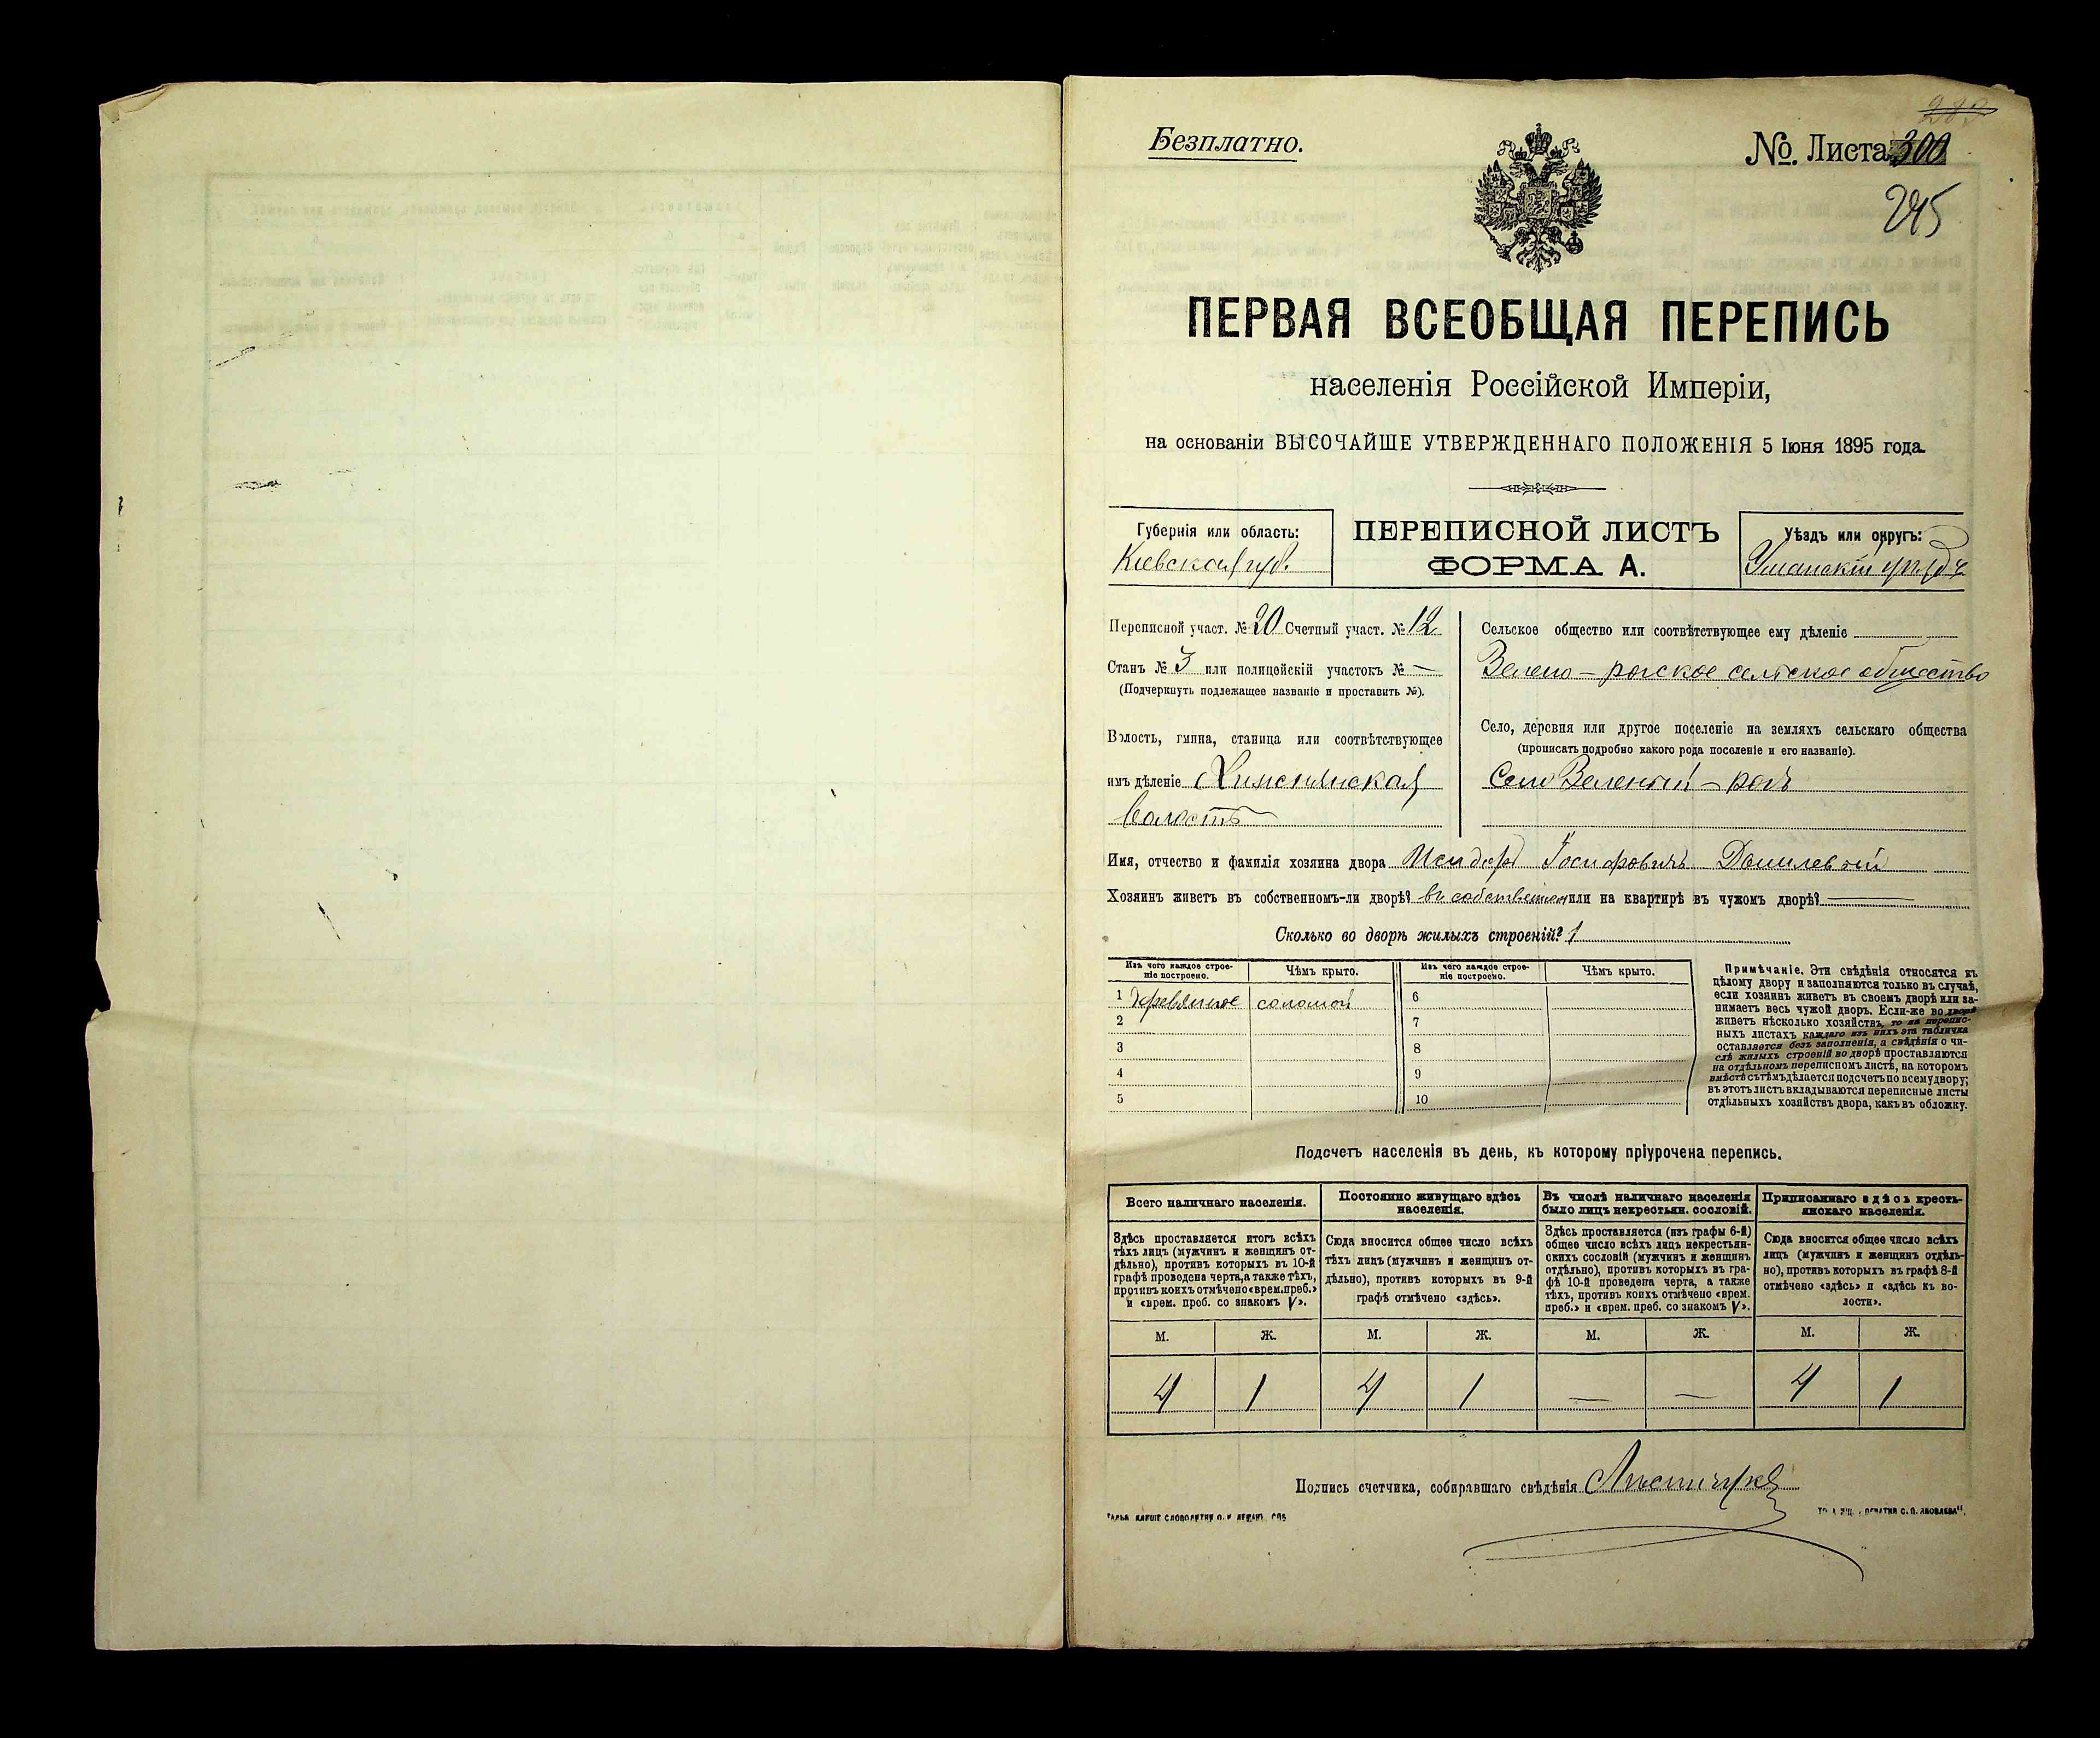 Безплатно.
№. Листа 300
245
ПЕРВАЯ ВСЕОБЩАЯ ПЕРЕПИСЬ
населенія Россійской Имперіи,
на основаніи ВЫСОЧАЙШЕ УТВЕРЖДЕННАГО ПОЛОЖЕНІЯ 5 Іюня 1895 года.
Губернія или область:
Кіевская губ.
ПЕРЕПИСНОЙ ЛИСТЪ
ФОРМА А.
Уѣздъ или округъ:
Уманскій уѣздъ
Переписной участ. № 20 Счетный участ. № 12
Станъ № 3 или полицейскій участокъ № —
(Подчеркнуть подлежащее названіе и проставить №).
Волость, гмина, станица или соотвѣтствующее
имъ дѣленіе
Волость
Сельское общество или соотвѣтствующее ему дѣленіе
Зелено-рогское сельское общество
Село, деревня или другое поселеніе на земляхъ сельскаго общества
(прописать подробно какого рода поселеніе и его названіе).
Село Зеленый-рогъ
Имя, отчество и фамилія хозяина двора Исидоръ Іосифовичъ
Хозяинъ живетъ въ собственномъ-ли дворѣ? въ собственном или на квартирѣ въ чужомъ дворѣ? —
Сколько во дворѣ жилыхъ строеній? 1
Изъ чего каждое строе-
ніе построено.
Чѣмъ крыто.
Изъ чего каждое строе-
ніе построено.
Чѣмъ крыто.
1 деревянное соломой 6
2 7
3 8
4 9
5 10
Примѣчаніе. Эти свѣдѣнія относятся къ
цѣлому двору и заполняются только въ случаѣ,
если хозяинъ живетъ въ своемъ дворѣ или за-
нимаетъ весь чужой дворъ. Если-же во дворѣ
живетъ нѣсколько хозяйствъ, то на перепис-
ныхъ листахъ каждаго изъ нихъ эта табличка
оставляется безъ заполненія, а свѣдѣнія о чи-
слѣ жилыхъ строеній во дворѣ проставляются
на отдѣльномъ переписномъ листѣ, на которомъ
вмѣстѣ съ тѣмъ дѣлается подсчетъ по всему двору;
въ этотъ листъ вкладываются переписные листы
отдѣльныхъ хозяйствъ двора, какъ въ обложку.
Подсчетъ населенія въ день, къ которому пріурочена перепись.
Всего наличнаго населенія.
Здѣсь проставляется итогъ всѣхъ
тѣхъ лицъ (мужчинъ и женщинъ от-
дѣльно), противъ которыхъ въ 10-й
графѣ проведена черта, а также тѣхъ,
противъ коихъ отмѣчено «врем. преб.»
и «врем. проб. со знакомъ V».
Постоянно живущаго здѣсь
населенія.
Сюда вносится общее число всѣхъ
тѣхъ лицъ (мужчинъ и женщинъ от-
дѣльно), противъ которыхъ въ 9-й
графѣ отмѣчено «здѣсь».
Въ числѣ наличнаго населенія
было лицъ некрестьян. сословій.
Здѣсь проставляется (изъ графы 6-й)
общее число всѣхъ лицъ некрестьян-
скихъ сословій (мужчинъ и женщинъ
отдѣльно), противъ которыхъ въ гра-
фѣ 10-й проведена черта, а также
тѣхъ, противъ коихъ отмѣчено «врем.
преб.» и «врем. преб. со знакомъ V».
Приписаннаго здѣсь кресть-
янскаго населенія.
Сюда вносится общее число всѣхъ
лицъ (мужчинъ и женщинъ отдѣль-
но), противъ которыхъ въ графѣ 8-й
отмѣчено «здѣсь» и «здѣсь къ во-
лости».
М. Ж. М. Ж. М. Ж. М. Ж.
4 1 4 1 — — 4 1
Подпись счетчика, собиравшаго свѣдѣнія